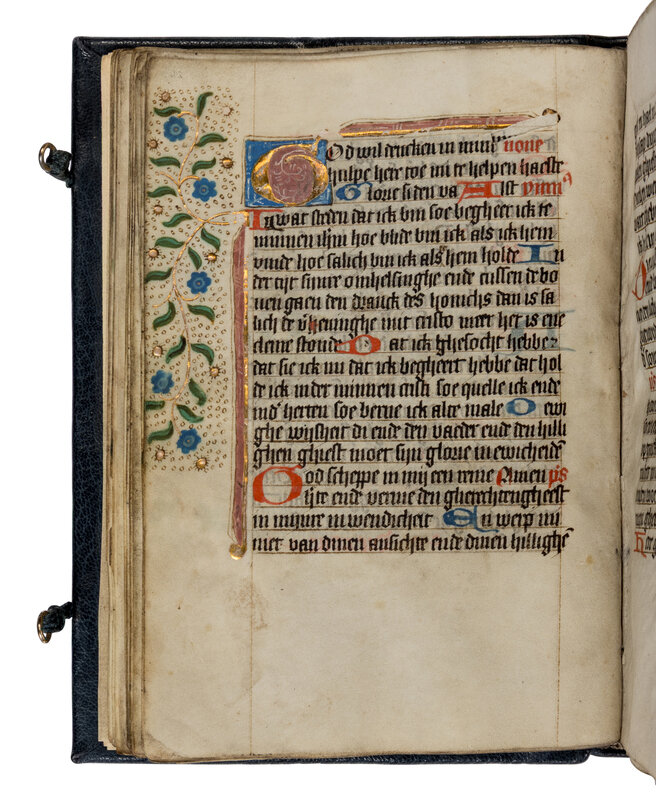 God wil dencken in minre hulpe
hulpe here toe mi te helpen haeste
Glorie si den va Alst ymn⁹
In wat steden dat ick bin soe begheer ick te
minnen ihm hoe blide bin ick als ick hem
vinde hoe salich bin ick als hem holde In
der tijt sinre omhelsinghe ende cussen de bo
uen gaen den dranck des honichs dan is sa
lich de v̄eninghe mit cristo meer het is ene
cleine stonde Dat ick ghesocht hebbe
dat sie ick nu dat ick begheert hebbe dat hol
de ick in der minnen cristi soe quelle ick ende
in d' herten soe berne ick alte male O ewi
ghe wijsheit di ende den vaeder ende den hilli
ghen gheest moet sijn glorie in ewicheidē
God scheppe in mij een reine Amen ps
h'te ende vernie den gherechten gheest
in mijnre in wendicheit En werp mi
niet van dinen ansichte ende dinen hillighē